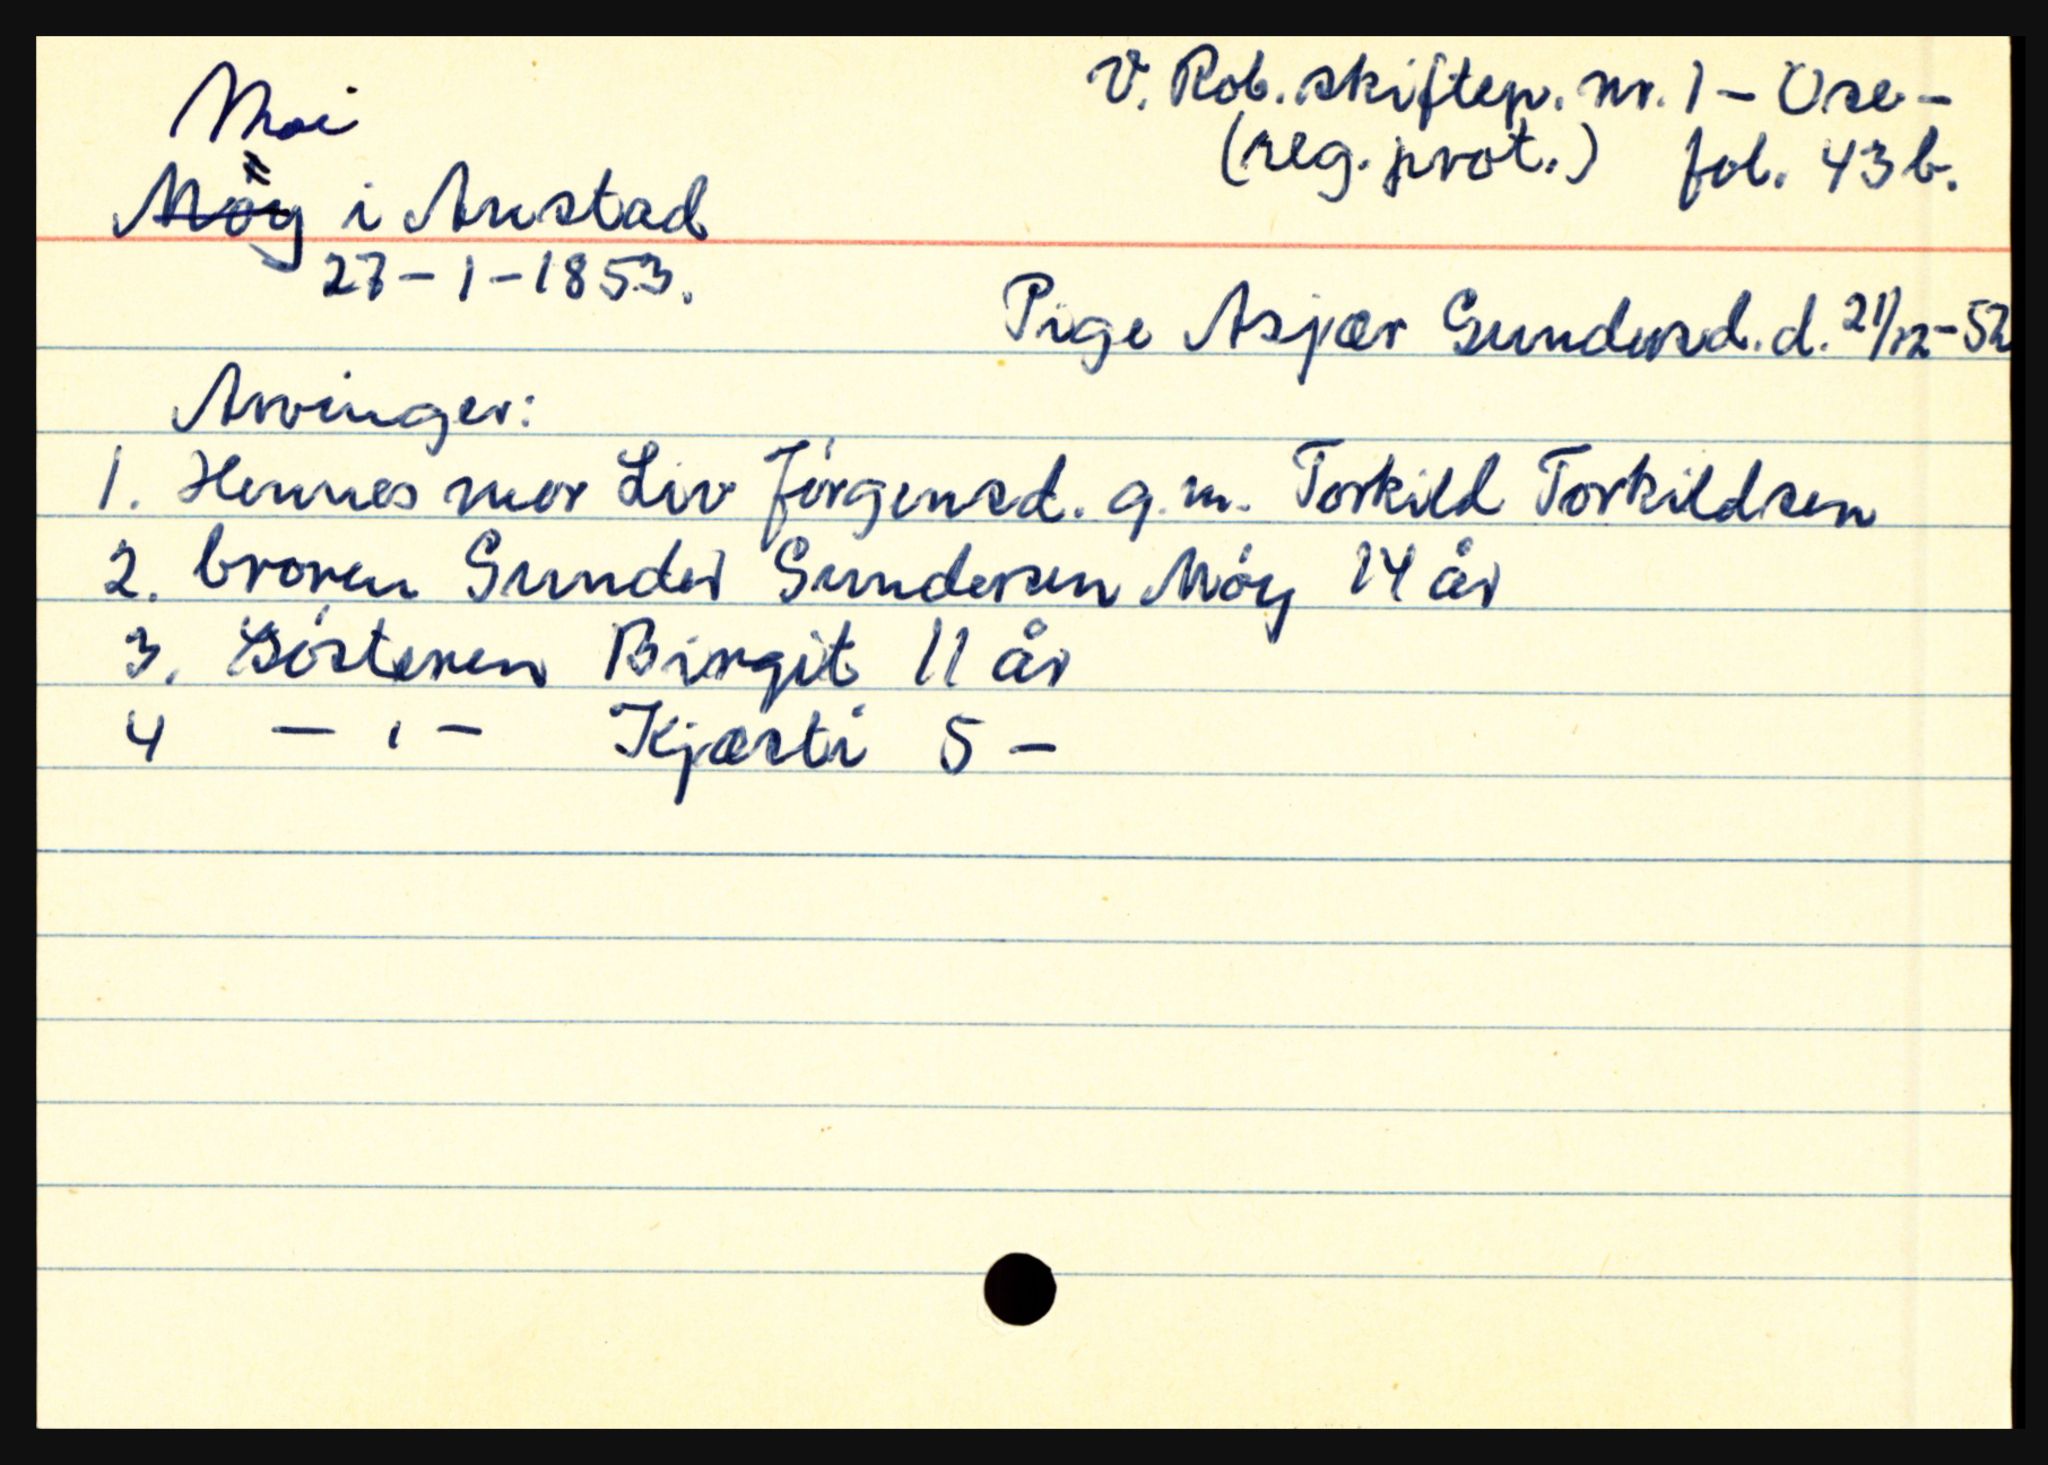 Moi
V. Rob. skiftep. nr. 1 - Ose -
(reg. prot.) fol. 43b.
Möy i Austad
27-1-1853.
Pige Asjær Gundersd. d. 21/12-52
Arvinger:
1. Hennes mor Liv Jörgensd. g.m. Torkild Torkildsen
2. broren Gunder Gundersen Möy 14 år
3. Søsteren Birgit 11 år
4 - " - Kjæsti 5 -